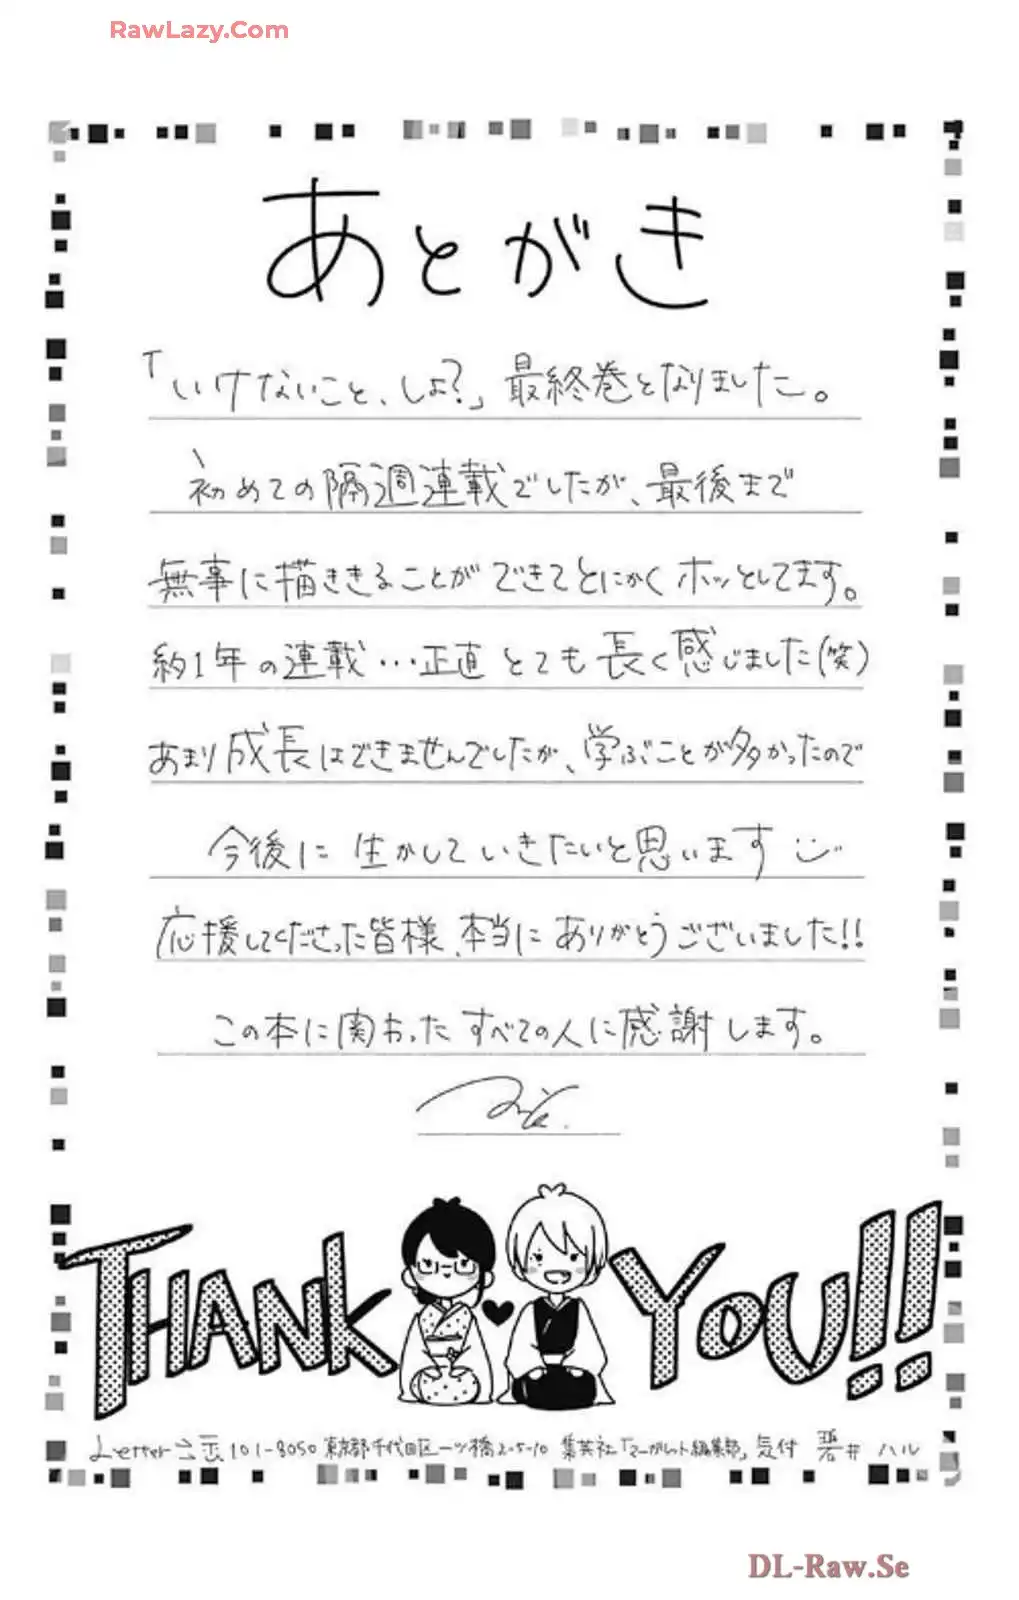 RawLazy.Com
あとがき
「いけないこと、しよ?」最終巻となりました。
初めての隔週連載でしたが、最後まで
無事に描ききることができてとにかくホッとしてます。
約1年の連載…正直とても長く感じました(笑)
あまり成長はできませんでしたが、学ぶことが多かったので
今後に生かしていきたいと思います
応援してくださった皆様、本当にありがとうございました!!
この本に関わったすべての人に感謝します。
THANK YOU!!
Letter 101-8050 東京都千代田区一ツ橋2-5-10 集英社「マーガレット編集部」気付 碧井ハル
DL-Raw.Se